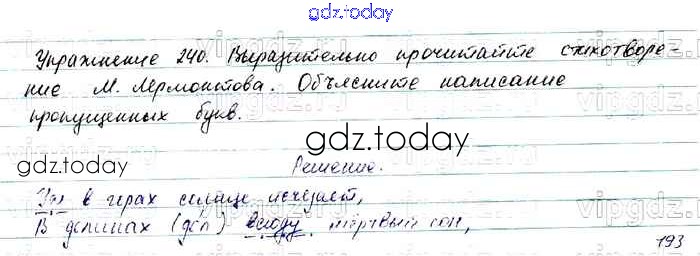 gdz.today
Упражнение 240. Выразительно прочитайте стихотворе-
ние М. Лермонтова. Объясните написание
пропущенных букв.
gdz.today
gdz.today
Решение.
в горах солнце исчезает,
В долинах (дол) всюду мёртвый сон,
193